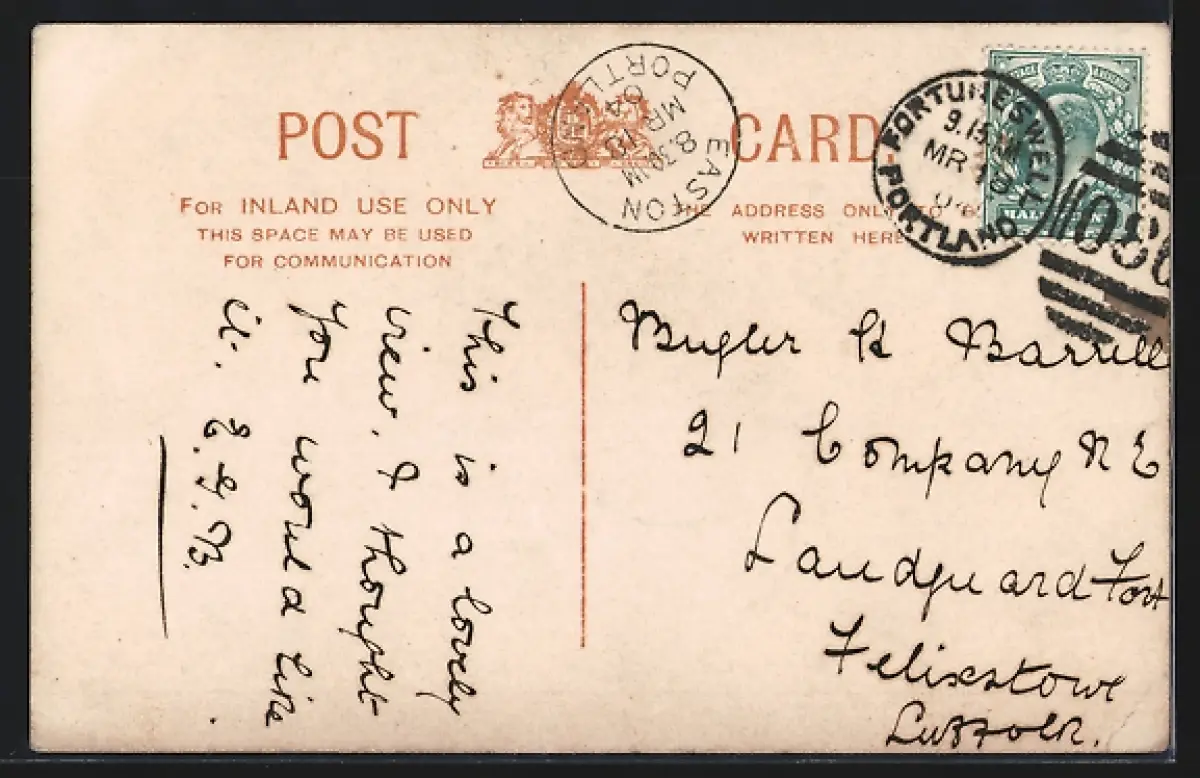 POST CARD.
FOR INLAND USE ONLY
THIS SPACE MAY BE USED
FOR COMMUNICATION
THE ADDRESS ONLY TO BE
WRITTEN HERE
EASTON
8.30AM
MR 10
04
PORTLAND
FORTUNESWELL
9.15AM
MR 10
04
PORTLAND
This is a lovely
view. I thought
you would like
it. E.G.B.
Bugler H Barrell
21 Company R E
Landguard Fort
Felixstowe
Suffolk.